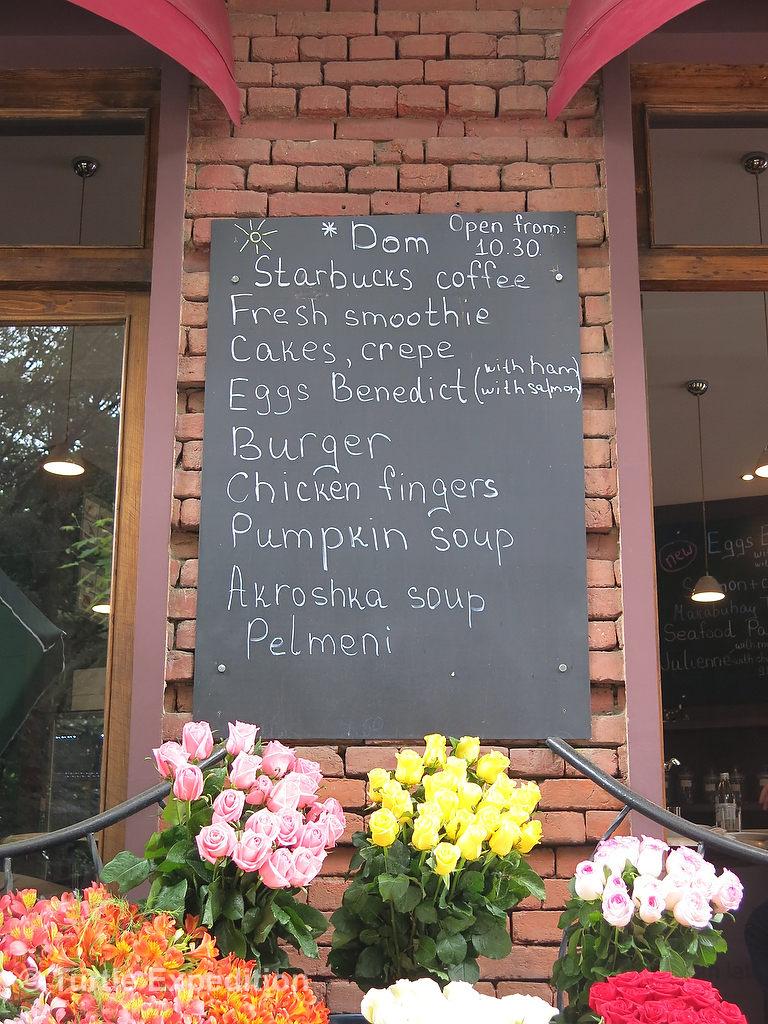 * Dom
Open from:
10.30.
Starbucks coffee
Fresh smoothie
Cakes, crepe
Eggs Benedict (with ham)
(with salmon)
Burger
Chicken fingers
Pumpkin soup
Akroshka soup
Pelmeni
new
Eggs
Seafood
Julienne
© Turtle Expedition